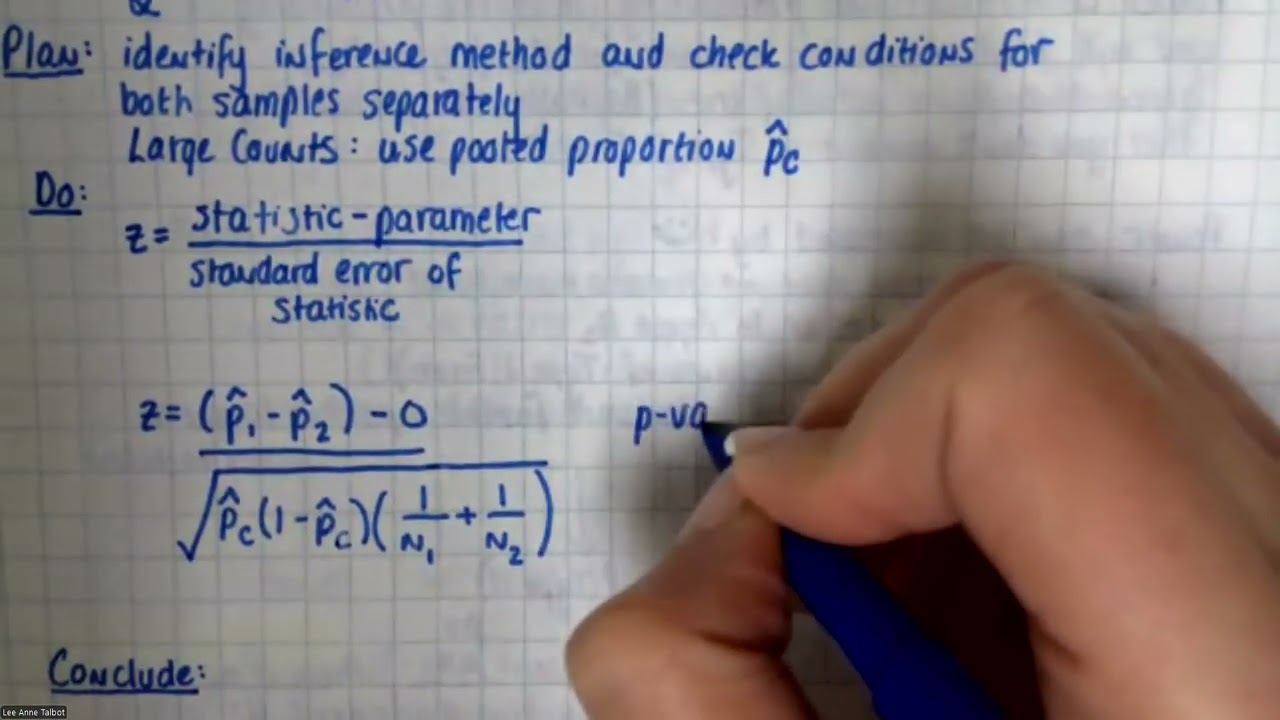 Plan: identify inference method and check conditions for
both samples separately
Large Counts: use pooled proportion p̂c
Do:
z = statistic - parameter
standard error of
statistic
z = (p̂₁ - p̂₂) - 0
√p̂c(1 - p̂c)(1/N₁ + 1/N₂)
p-va
Conclude:
Lee Anne Talbot